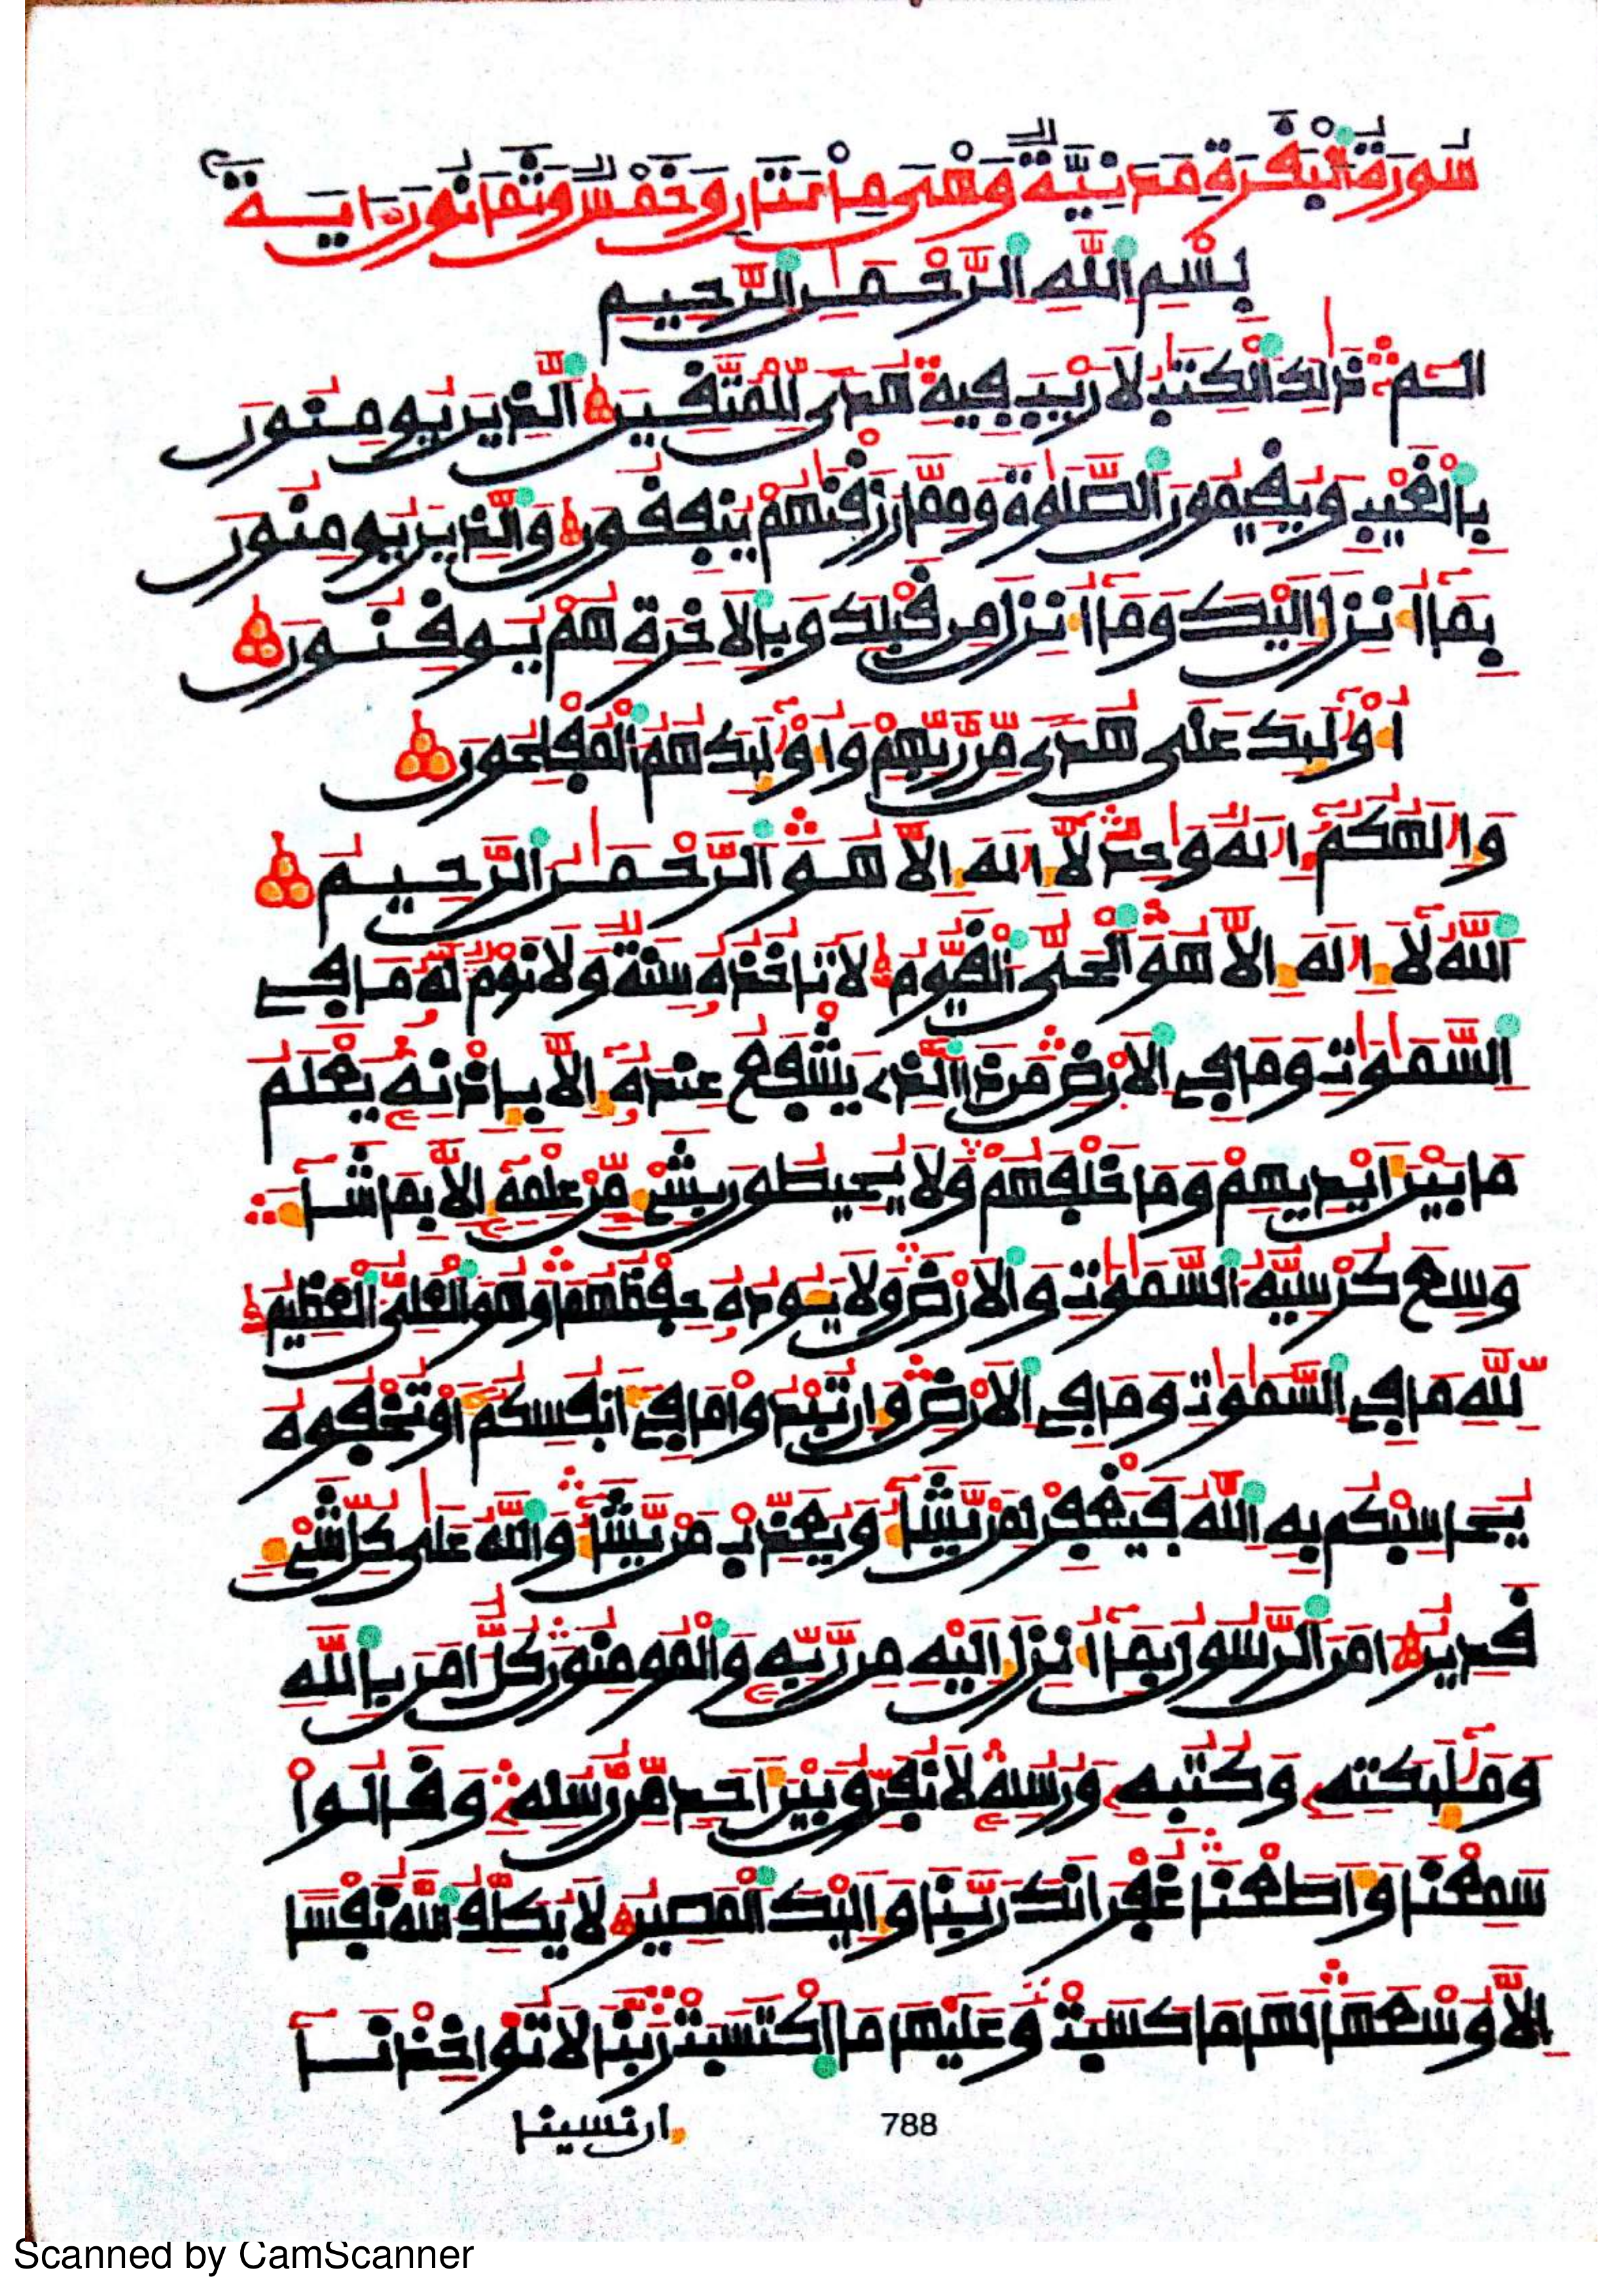 سورة البقرة مدنية وهى مائتان وخمس وثمانون ءاية
بسم الله الرحمن الرحيم
الم ذلك الكتب لا ريب فيه هدى للمتقين الذين يومنون
بالغيب ويقيمون الصلوة ومما رزقنهم ينفقون والذين يومنون
بما أنزل إليك وما أنزل من قبلك وبالاخرة هم يوقنون
أولئك على هدى من ربهم وأولئك هم المفلحون
وإلهكم إله وحد لا إله إلا هو الرحمن الرحيم
الله لا إله إلا هو الحى القيوم لا تاخذه سنة ولا نوم له ما في
السموت وما في الارض من ذا الذي يشفع عنده إلا بإذنه يعلم
ما بين أيديهم وما خلفهم ولا يحيطون بشيء من علمه إلا بما شاء
وسع كرسيه السموت والارض ولا يئوده حفظهما وهو العلى العظيم
لله ما في السموت وما في الارض وإن تبدوا ما في أنفسكم أو تخفوه
يحاسبكم به الله فيغفر لمن يشاء ويعذب من يشاء والله على كل شيء
قدير امن الرسول بما أنزل إليه من ربه والمومنون كل امن بالله
وملئكته وكتبه ورسله لا نفرق بين أحد من رسله وقالوا
سمعنا وأطعنا غفرانك ربنا وإليك المصير لا يكلف الله نفسا
إلا وسعها لها ما كسبت وعليها ما اكتسبت ربنا لا تواخذنا
إن نسينا
788
Scanned by CamScanner